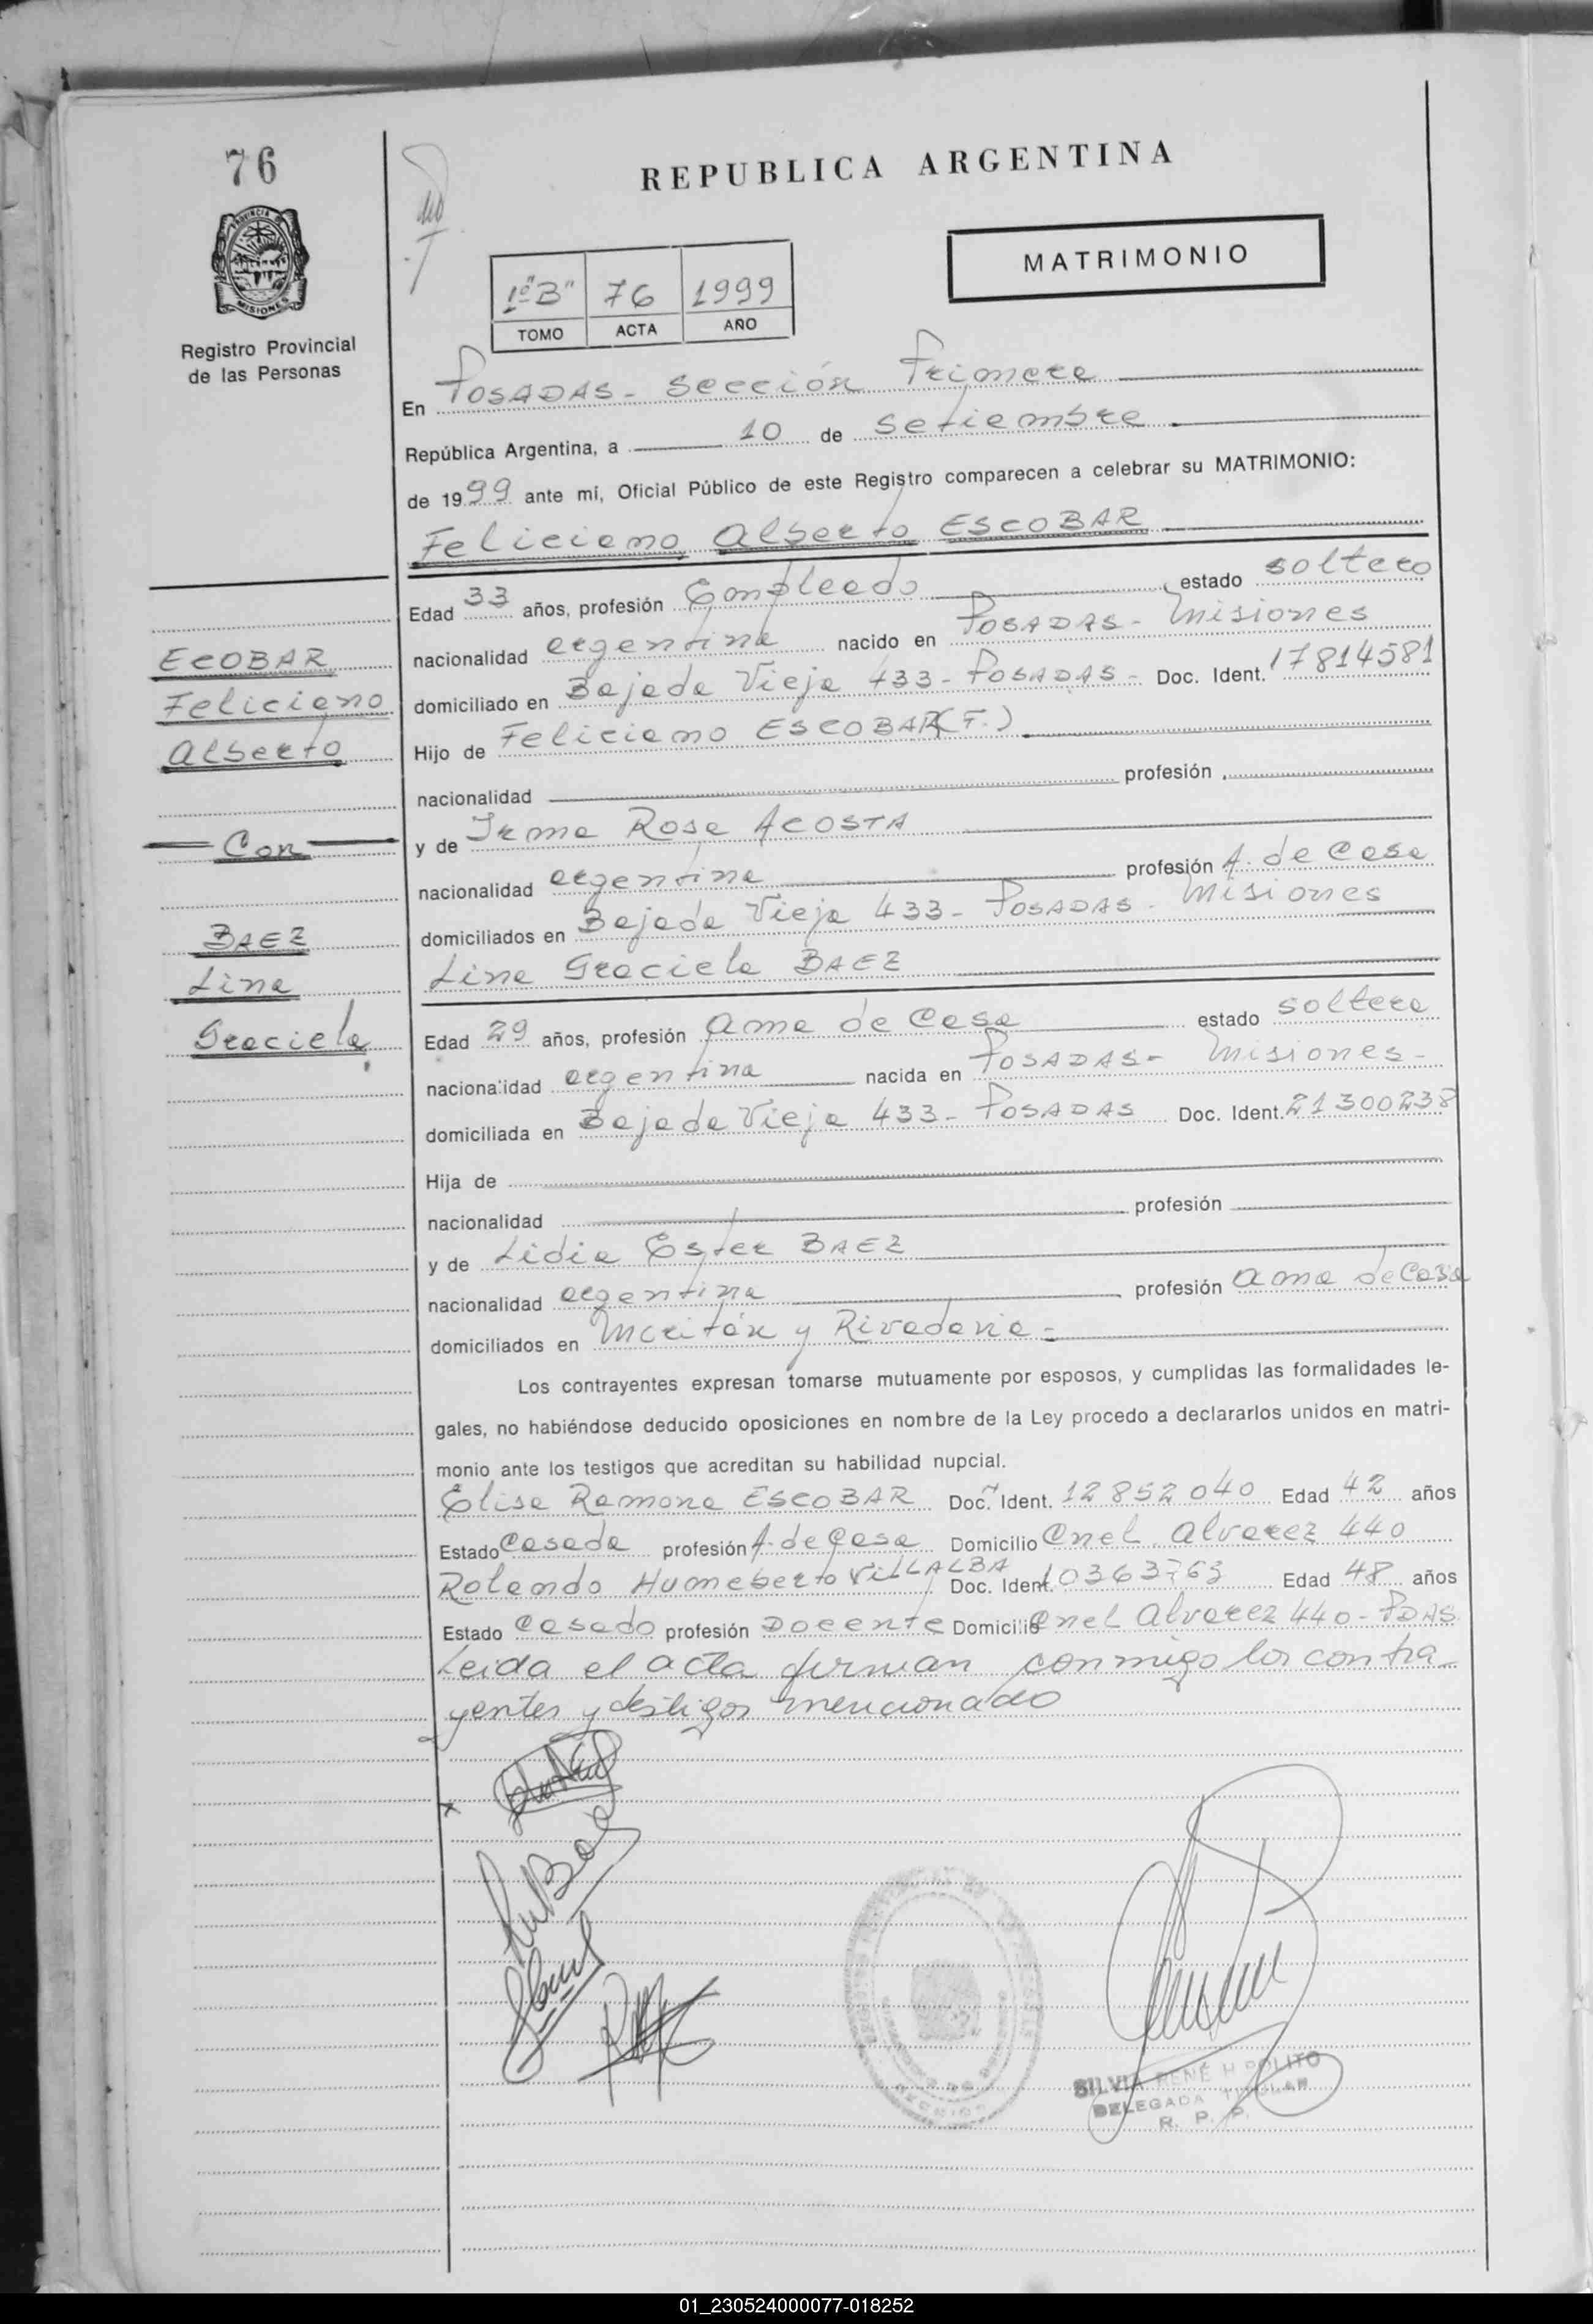 76
REPUBLICA ARGENTINA
MATRIMONIO
PROVINCIA DE
MISIONES
Registro Provincial
de las Personas
1º"B" 76 1999
TOMO ACTA AÑO
En POSADAS - Sección Primera
República Argentina, a 10 de Setiembre
de 1999 ante mí, Oficial Público de este Registro comparecen a celebrar su MATRIMONIO:
Feliciano Alberto ESCOBAR
Edad 33 años, profesión Empleado estado soltero
nacionalidad argentina nacido en POSADAS - Misiones
domiciliado en Bajada Vieja 433 - POSADAS - Doc. Ident. 17814581
Hijo de Feliciano ESCOBAR (F.)
nacionalidad profesión
y de Irma Rosa ACOSTA
nacionalidad argentina profesión A. de Casa
domiciliados en Bajada Vieja 433 - POSADAS - Misiones
Lina Graciela BAEZ
Edad 29 años, profesión Ama de Casa estado soltera
nacionalidad argentina nacida en POSADAS - Misiones -
domiciliada en Bajada Vieja 433 - POSADAS Doc. Ident. 21300238
Hija de
nacionalidad profesión
y de Lidia Ester BAEZ
nacionalidad argentina profesión ama de Casa
domiciliados en y Rivadavia -
Los contrayentes expresan tomarse mutuamente por esposos, y cumplidas las formalidades le-
gales, no habiéndose deducido oposiciones en nombre de la Ley procedo a declararlos unidos en matri-
monio ante los testigos que acreditan su habilidad nupcial.
Elisa Ramona ESCOBAR Doc. Ident. 12852040 Edad 42 años
Estado Casada profesión A. de Casa Domicilio Cnel. Alvarez 440
Rolando Humeberto VILLALBA Doc. Ident. 10363763 Edad 48 años
Estado Casado profesión Docente Domicilio Cnel Alvarez 440 - PDAS
Leida el acta firman conmigo los contra-
yentes y testigos mencionado
ECOBAR
Feliciano
Alberto
Con
BAEZ
Lina
Graciela
SILVIA RENÉ H POLITO
DELEGADA TITULAR
R. P. P.
01_230524000077-018252